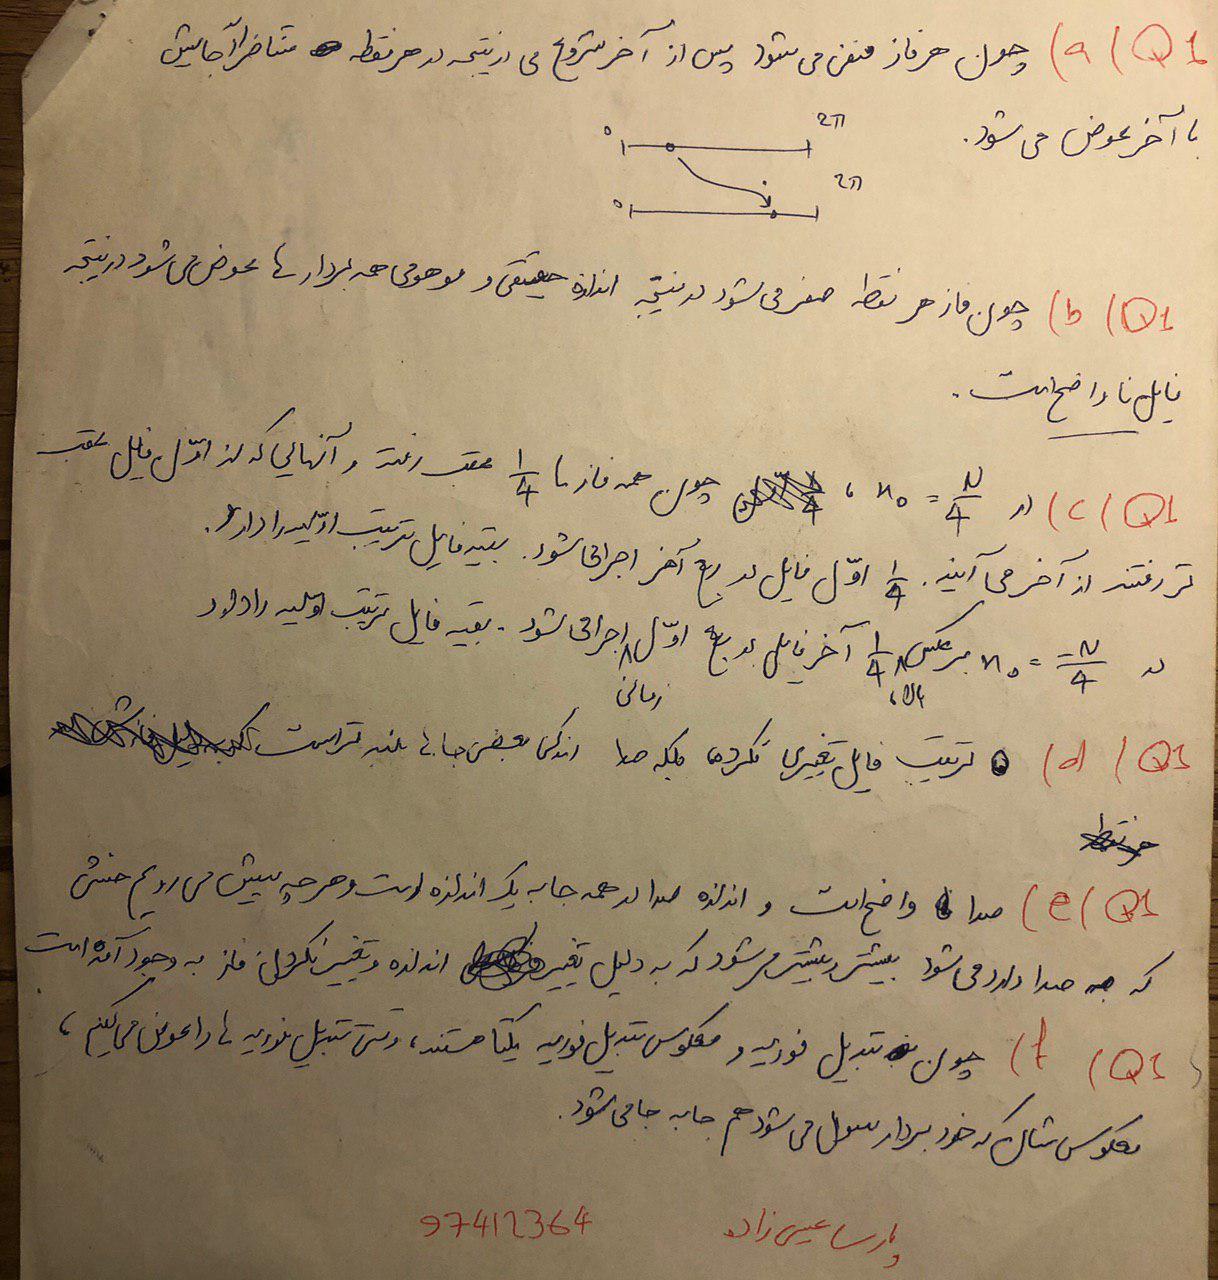 Q1) a) چون هر فاز منفی می شود پس از آخر شروع می در نتیجه در هر نقطه متناظراً جایش
با آخر عوض می شود.
0 2π
0 2π
Q1) b) چون فاز هر نقطه صفر می شود در نتیجه اندازه حقیقی و موهومی همه بردار ها عوض می شود در نتیجه
فایل نا واضح است.
Q1) c) در n₀ = N/4 ، چون همه فاز ها 1/4 عقب رفته و آنهایی که از اوّل فایل عقب
تر رفتند از آخر می آیند. 1/4 اوّل فایل در ربع آخر اجرا می شود. بقیه فایل ترتیب اوّلیه را دارد.
در n₀ = -N/4 برعکس 1/4 آخر فایل در ربع اوّل زمانی اجرا می شود. بقیه فایل ترتیب اوّلیه را دارد
Q1) d) ترتیب فایل تغییری نکرده بلکه صدا اندکی بعضی جا ها بلند تر است
Q1) e) صدا واضح است و اندازه صدا در همه جا به یک اندازه است و هر چه پیش می رویم خشی
که به صدا وارد می شود بیشتر و بیشتر می شود که به دلیل تغییر اندازه و تغییر نکردن فاز به وجود آمده است
Q1) f) چون تبدیل فوریه و معکوس تبدیل فوریه یکتا هستند، وقتی تبدیل فوریه ها را عوض می کنیم ،
معکوس شان که خود بردار سیگنال می شود هم جا به جا می شود.
پارسا عیسی زاده 97412364